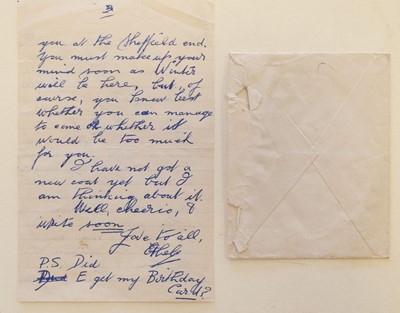 3
you at the Sheffield end.
You must make up your
mind soon as Winter
will be here, but, of
course, you know best
whether you can manage
to come or whether it
would be too much
for you.
I have not got a
new coat yet but I
am thinking about it.
Well, cheerio, &
write soon
Love to all,
Ethel
P.S. Did
E get my Birthday
Card?